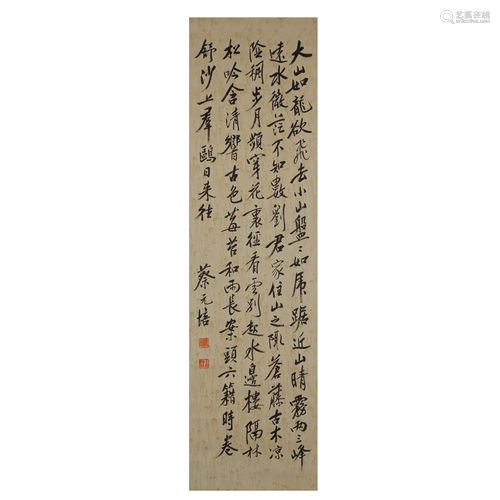 大山如龍欲飛去小山盤〻如虎踞近山晴霧兩三峰
遠水微茫不知數劉君家住山之隈蒼藤古木凉
陰稠步月頻穿花裏徑看雲別起水邊樓隔林
松吟含清響古色莓苔和雨長案頭六籍時卷
舒沙上羣鷗日来往
蔡元培
艺赢在线
www.epailive.com